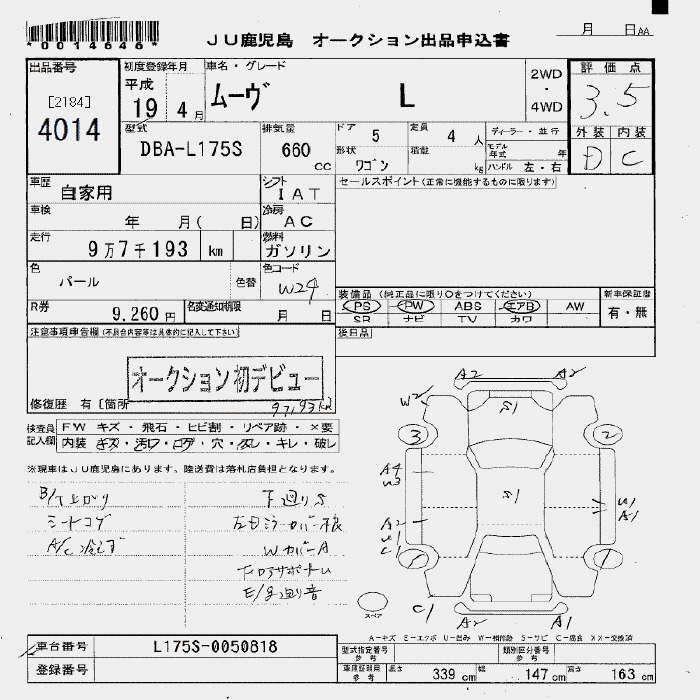 *0014646*
JU鹿児島 オークション出品申込書
月 日 AA
出品番号
[2184]
4014
初度登録年月
平成
19 4 月
車名・グレード
ムーヴ L
2WD
・
4WD
評価点
3.5
外装 内装
D C
型式
DBA-L175S
排気量
660 cc
ドア 5
定員 4 人
形状 ワゴン
積載 kg
ディーラー・並行
モデル年式 年
ハンドル 左・右
車歴 自家用
シフト IAT
セールスポイント(正常に機能するものに限ります)
車検 年 月( 日)
冷房 AC
走行 9万7千193 km
燃料 ガソリン
色 パール 色替
色コード W24
R券 9,260円
名変通知期限 月 日
装備品(純正品に限り○をつけてください)
PS PW ABS エアB AW
SR ナビ TV カワ
新車保証書
有・無
注意事項車告欄(不具合内容等は具体的に記入して下さい)
後日品
オークション初デビュー
修復歴 有 [箇所
97,193km
検査員記入欄
FW キズ・飛石・ヒビ割・リペア跡・×要
内装 キズ・汚れ・コゲ・穴・タレ・キレ・破レ
※現車はJU鹿児島にあります。陸送費は落札店負担となります。
シートコゲ
A/C冷えず
下廻りS
WカバーA
A2 A2
W2 S1
3 2
A4
W3
S1
W1
A1
A2
W1
C1
C1 A2 A1
スペア
A-キズ E-エクボ U-凹み W-補修跡 S-サビ C-腐食 XX-交換済
車台番号 L175S-0050818
登録番号
型式指定番号 参考
類別区分番号 参考
車庫証明用 参考 長さ 339 cm 幅 147 cm 高さ 163 cm